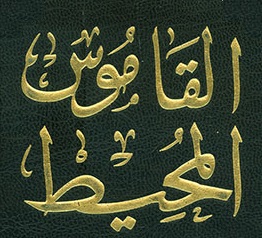 القاموس
المحيط